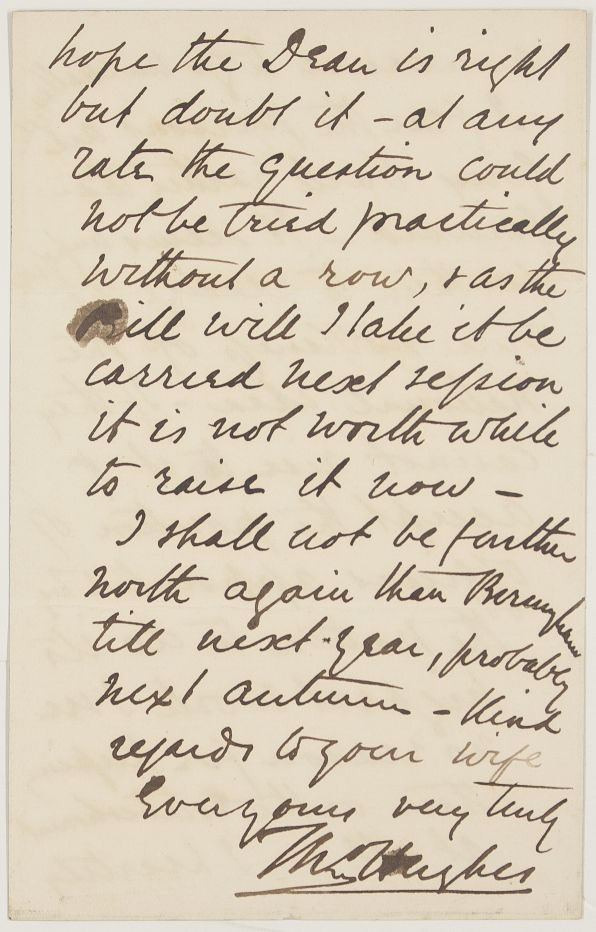 hope the Dean is right
but doubt it – at any
rate the question could
not be tried practically
without a row, & as the
Bill will I take it be
carried next session
it is not worth while
to raise it now –
I shall not be further
north again than Birmingham
till next year, probably
next autumn – Kind
regards to your wife
Ever yours very truly
Thos Hughes